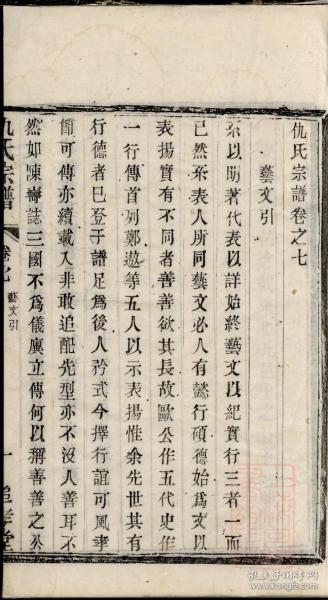 仇氏宗譜卷之七
藝文引
系以明著代表以詳始終藝文以紀實行三者一而
已然系表人所同藝文必人有懿行碩德始為文以
表揚實有不同者善善欲其長故歐公作五代史作
一行傳首列鄭遨等五人以示表揚惟余先世其有
行德者已登于譜足為後人矜式今擇行誼可風孝
節可傳亦續載入非敢追配先型亦不没人善耳不
然如陳壽誌三國不為儀廙立傳何以稱善善之公
仇氏宗譜
卷七
藝文引
一
追孝堂
孔夫子旧书网